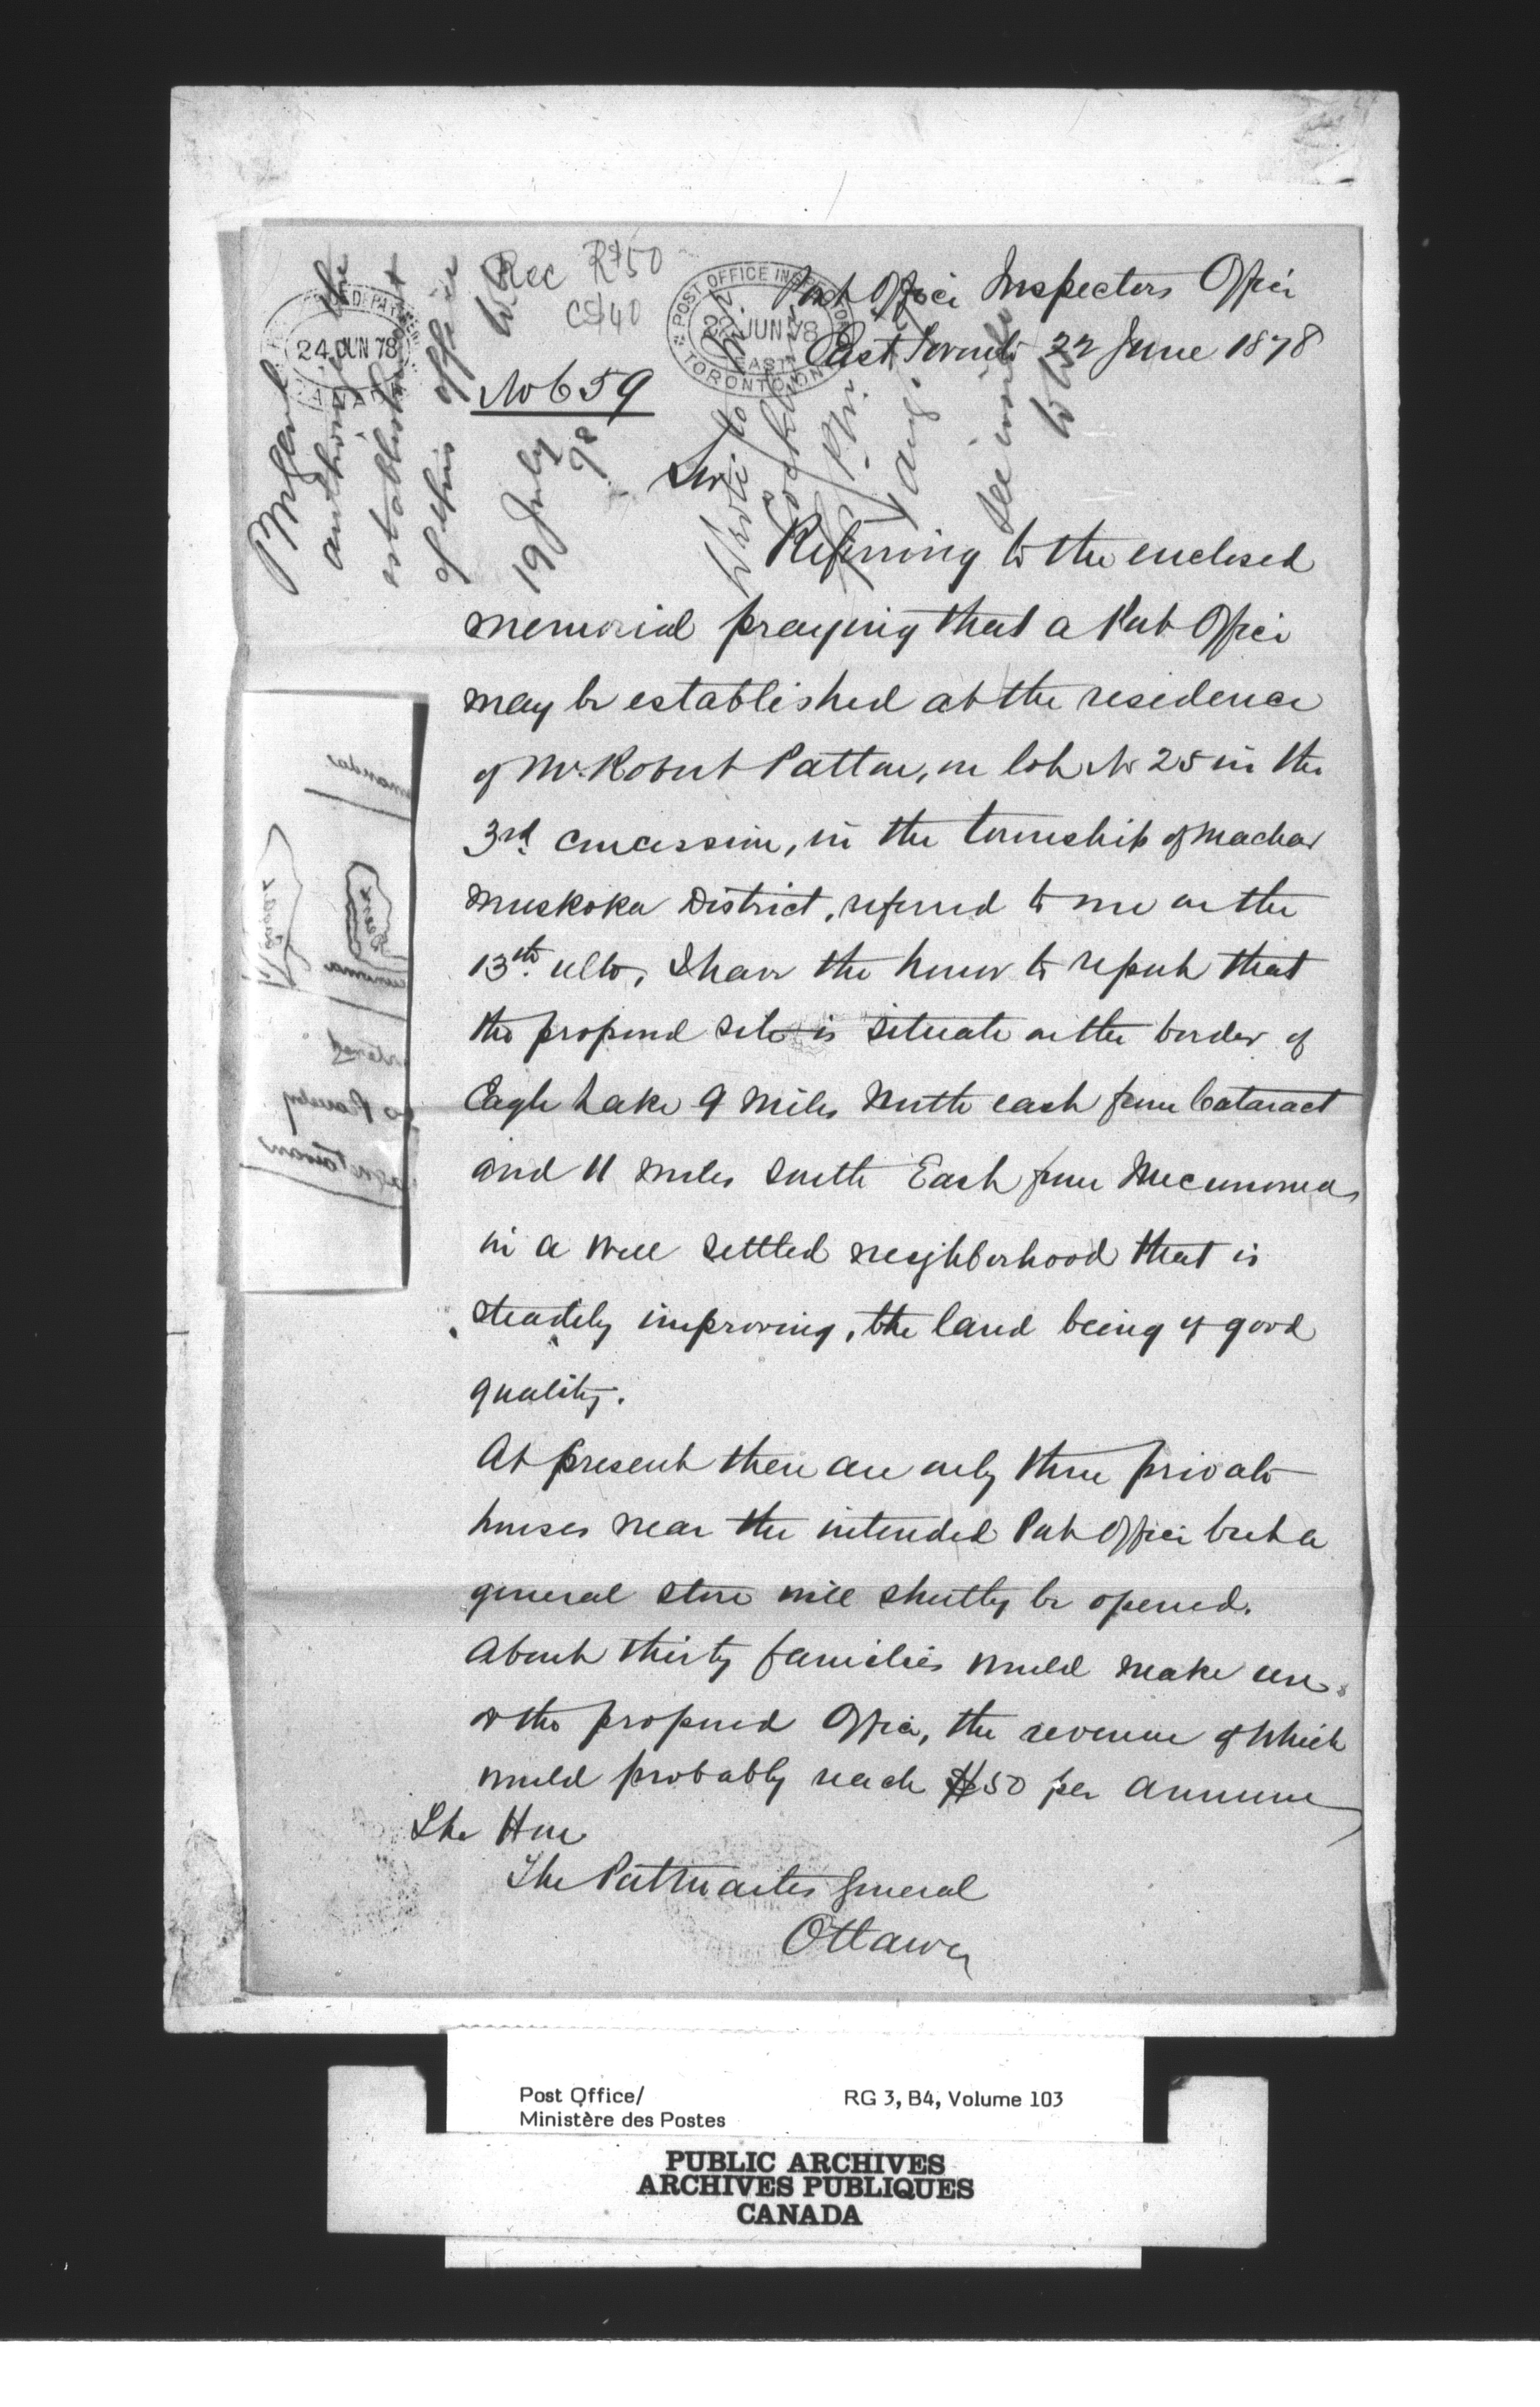 Rec R$50
C$40
Post Office Inspectors Office
East Toronto 22 June 1878
POST OFFICE INSPECTOR
22 JUN 78
EAST
TORONTO ONT
24 JUN 78
CANADA
No 659
PMGenl
authorized the
establishment
of this office
19 July
78
See inside
Sir
Referring to the enclosed
memorial praying that a Post Office
may be established at the residence
of Mr. Robert Patton, on lot No 25 in the
3rd. concession, in the township of Machar
Muskoka District, referred to me on the
13th. ulto, I have the honor to report that
the proposed site is situate on the border of
Eagle Lake 9 miles North east from Cataract
and 11 miles South East from Mecunoma
in a well settled neighborhood that is
steadily improving, the land being of good
quality.
At present there are only three private
houses near the intended Post Office but a
general store will shortly be opened.
About thirty families would make use
of the proposed Office, the revenue of which
would probably reach $50 per annum
The Hon
The Postmaster General
Ottawa
Post Office/
Ministère des Postes
RG 3, B4, Volume 103
PUBLIC ARCHIVES
ARCHIVES PUBLIQUES
CANADA